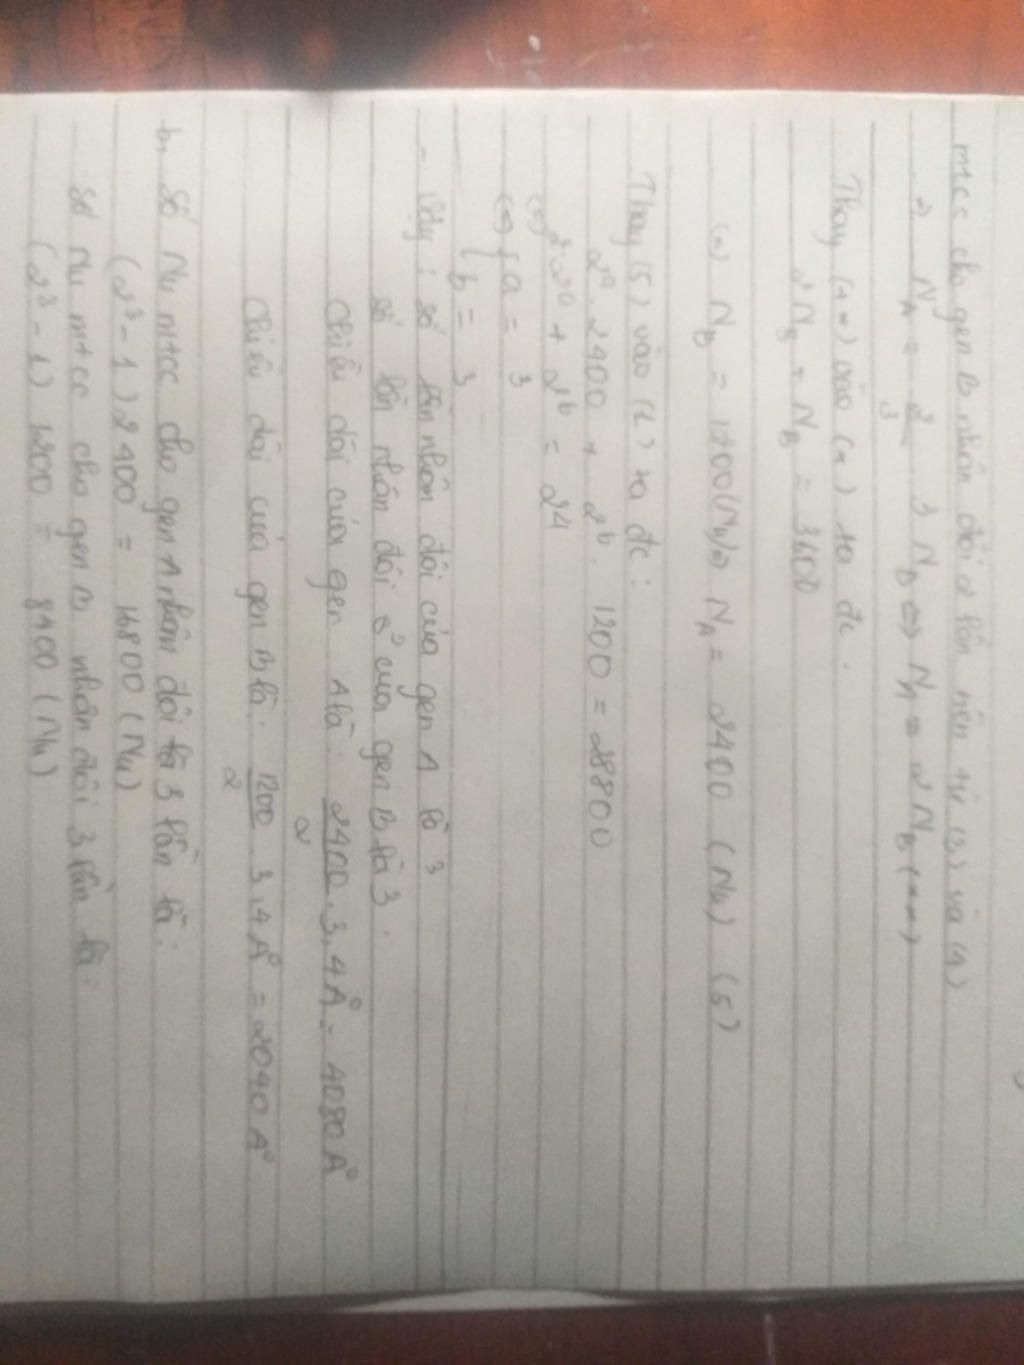 mtcc cho gen B nhân đôi 2 lần nên từ (3) và (4)
=> N_A = 2/3 . 3 N_B <=> N_A = 2 N_B (**)
Thay (**) vào (*) ta đc :
2 N_B + N_B = 3600
(=) N_B = 1200 (Nu) => N_A = 2400 (Nu) (5)
Thay (5) vào (2) ta đc :
2^a . 2400 + 2^b . 1200 = 28800
(=) 2 . 2^a + 2^b = 24
(=) { a = 3
b = 3
- Vậy : số lần nhân đôi của gen A là 3
số lần nhân đôi của gen B là 3 .
Chiều dài của gen A là : 2400/2 . 3,4 A° = 4080 A°
Chiều dài của gen B là : 1200/2 . 3,4 A° = 2040 A°
b, Số Nu mtcc cho gen A nhân đôi là 3 lần là :
(2^3 - 1) 2400 = 16800 (Nu)
Số Nu mtcc cho gen B nhân đôi 3 lần là :
(2^3 - 1) 1200 = 8400 (Nu)